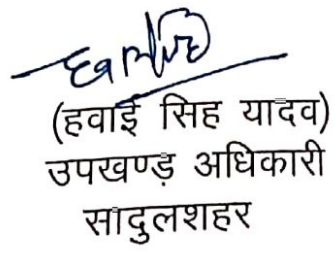 (हवाई सिह यादव)
उपखण्ड़ अधिकारी
सादुलशहर